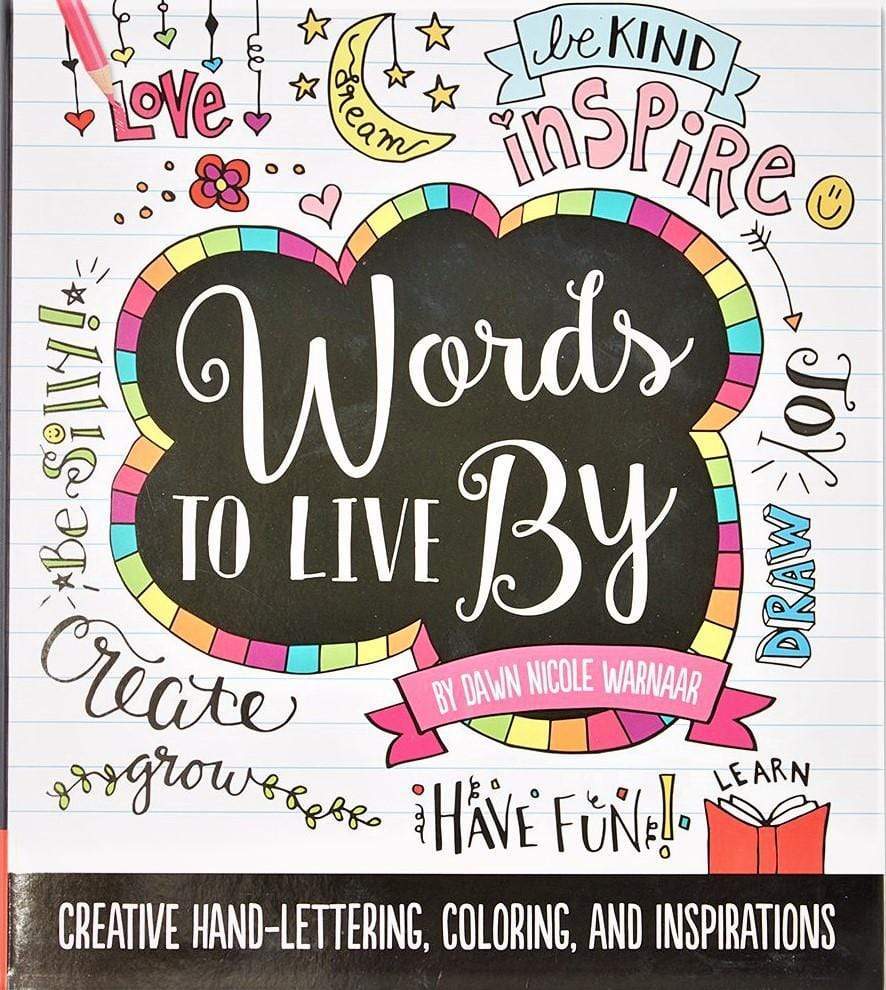 LOVE
dream
be KIND
inSPiRe
Words
TO LIVE By
BY DAWN NICOLE WARNAAR
Be Silly!
JOY
DRAW
Create
grow
HAVE FUN!
LEARN
CREATIVE HAND-LETTERING, COLORING, AND INSPIRATIONS